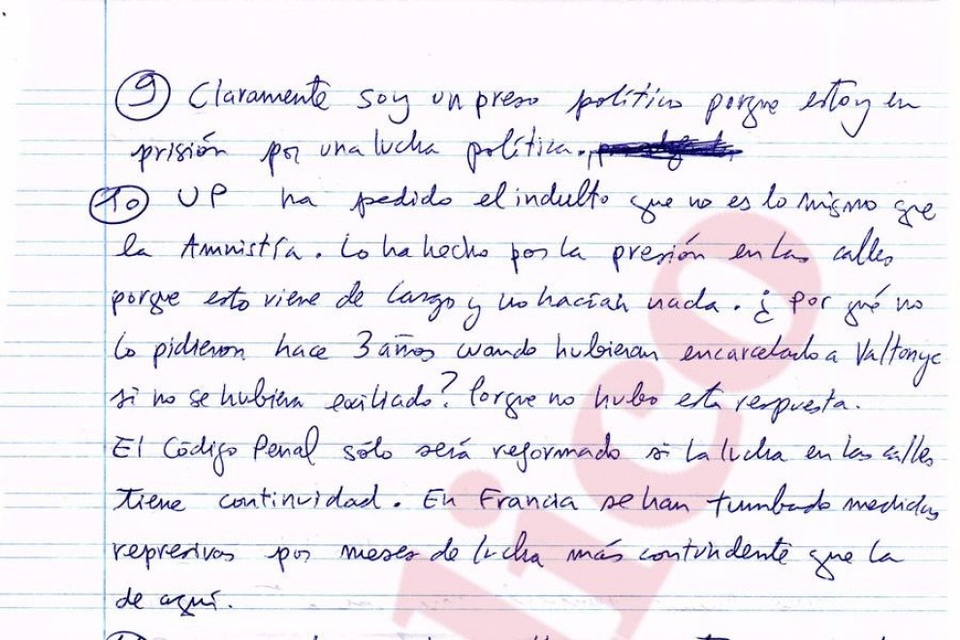 ⑨ Claramente soy un preso político porque estoy en
prisión por una lucha política.
⑩ UP ha pedido el indulto que no es lo mismo que
la Amnistía. Lo ha hecho por la presión en las calles
porque esto viene de largo y no hacían nada. ¿Por qué no
lo pidieron hace 3 años cuando hubieran encarcelado a Valtonyc
si no se hubiera exiliado? Porque no hubo esta respuesta.
El Código Penal sólo será reformado si la lucha en las calles
tiene continuidad. En Francia se han tumbado medidas
represivas por meses de lucha más contundente que la
de aquí.
lico